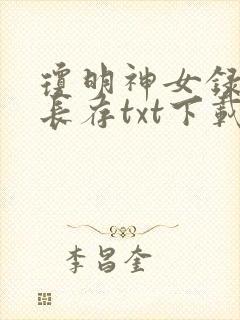 瓊明神女録
長存txt下載
李昌奎